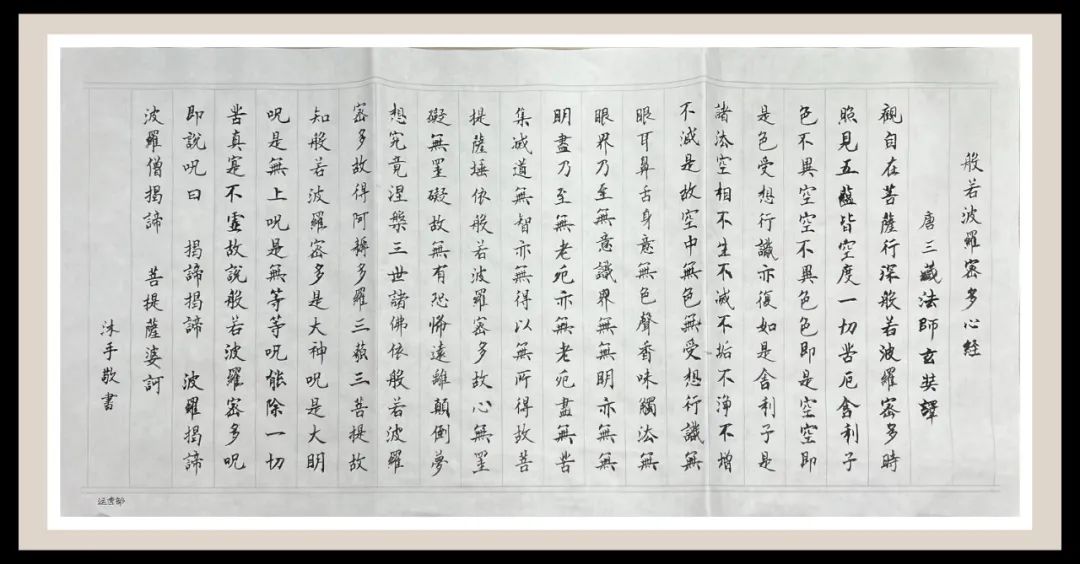 般若波羅密多心経
唐三藏法師玄奘譯
觀自在菩薩行深般若波羅密多時
照見五蘊皆空度一切苦厄舍利子
色不異空空不異色色即是空空即
是色受想行識亦復如是舍利子是
諸法空相不生不滅不垢不淨不增
不減是故空中無色無受想行識無
眼耳鼻舌身意無色聲香味觸法無
眼界乃至無意識界無無明亦無無
明盡乃至無老死亦無老死盡無苦
集滅道無智亦無得以無所得故菩
提薩埵依般若波羅密多故心無罣
礙無罣礙故無有恐怖遠離顛倒夢
想究竟涅槃三世諸佛依般若波羅
密多故得阿耨多羅三藐三菩提故
知般若波羅密多是大神呪是大明
呪是無上呪是無等等呪能除一切
苦真實不虛故說般若波羅密多呪
即說呪曰　揭諦揭諦　波羅揭諦
波羅僧揭諦　菩提薩婆訶
沐手敬書